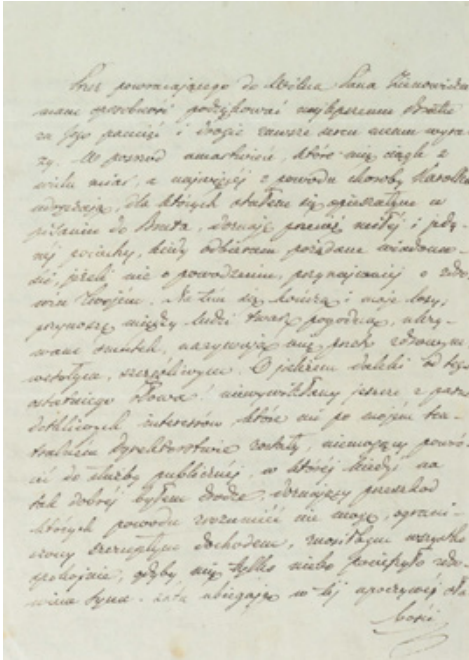 Przez powracającego do Wilna Pana
mam sposobność podziękować najlepszemu
za Jego pamięć i drogie zawsze sercu memu wyra-
zy. W pośród zmartwień, które mię ciągle z
wielu miar, a najwięcej z powodu choroby Karolka
dla których stałem się opieszałym w
pisaniu do Brata, doznaję przecież miłej i jedy-
nej pociechy, kiedy odbieram pożądane wiadomo-
ści, jeżeli nie o powodzeniu, przynajmniej o zdro-
wiu Twojém. Na tém się kończą i moje losy,
przynoszę między ludzi twarz pogodną, ukry-
wam smutek, nazywają mię przeto
szczęśliwym. O jakżem daleki od tego
ostatniego słowa! niewywikłany jeszcze z
interessów, które mi po mojém tea-
tralném dyrektorstwie zostały, niemogący powró-
cić do służby publicznej, w której kiedyś na
tak dobrej byłem drodze, doznający przeszkod
których powodu zrozumieć nie mogę, ograni-
czony szczupłym dochodem, zniósłbym wszystko
spokojnie, gdyby mię tylko niebo pocieszyło zdro-
wiem syna. Lata ubiegają w tej